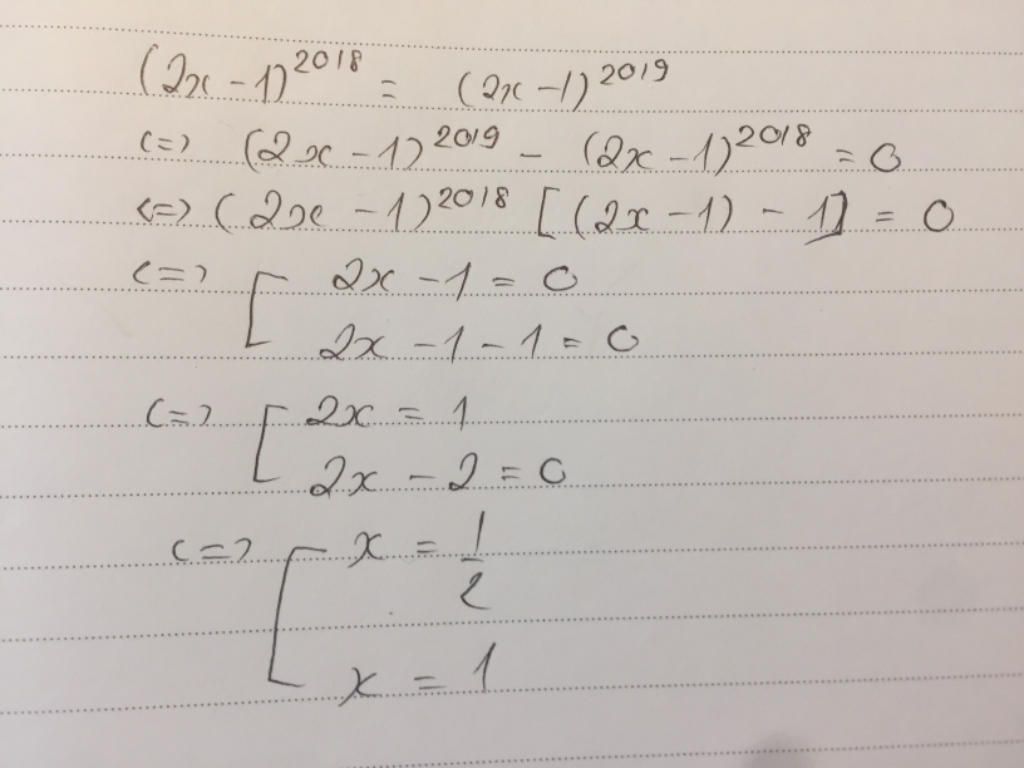 (2x - 1)^2018 = (2x - 1)^2019
<=> (2x - 1)^2019 - (2x - 1)^2018 = 0
<=> (2x - 1)^2018 [(2x - 1) - 1] = 0
<=> [ 2x - 1 = 0
2x - 1 - 1 = 0
<=> [ 2x = 1
2x - 2 = 0
<=> [ x = 1/2
x = 1